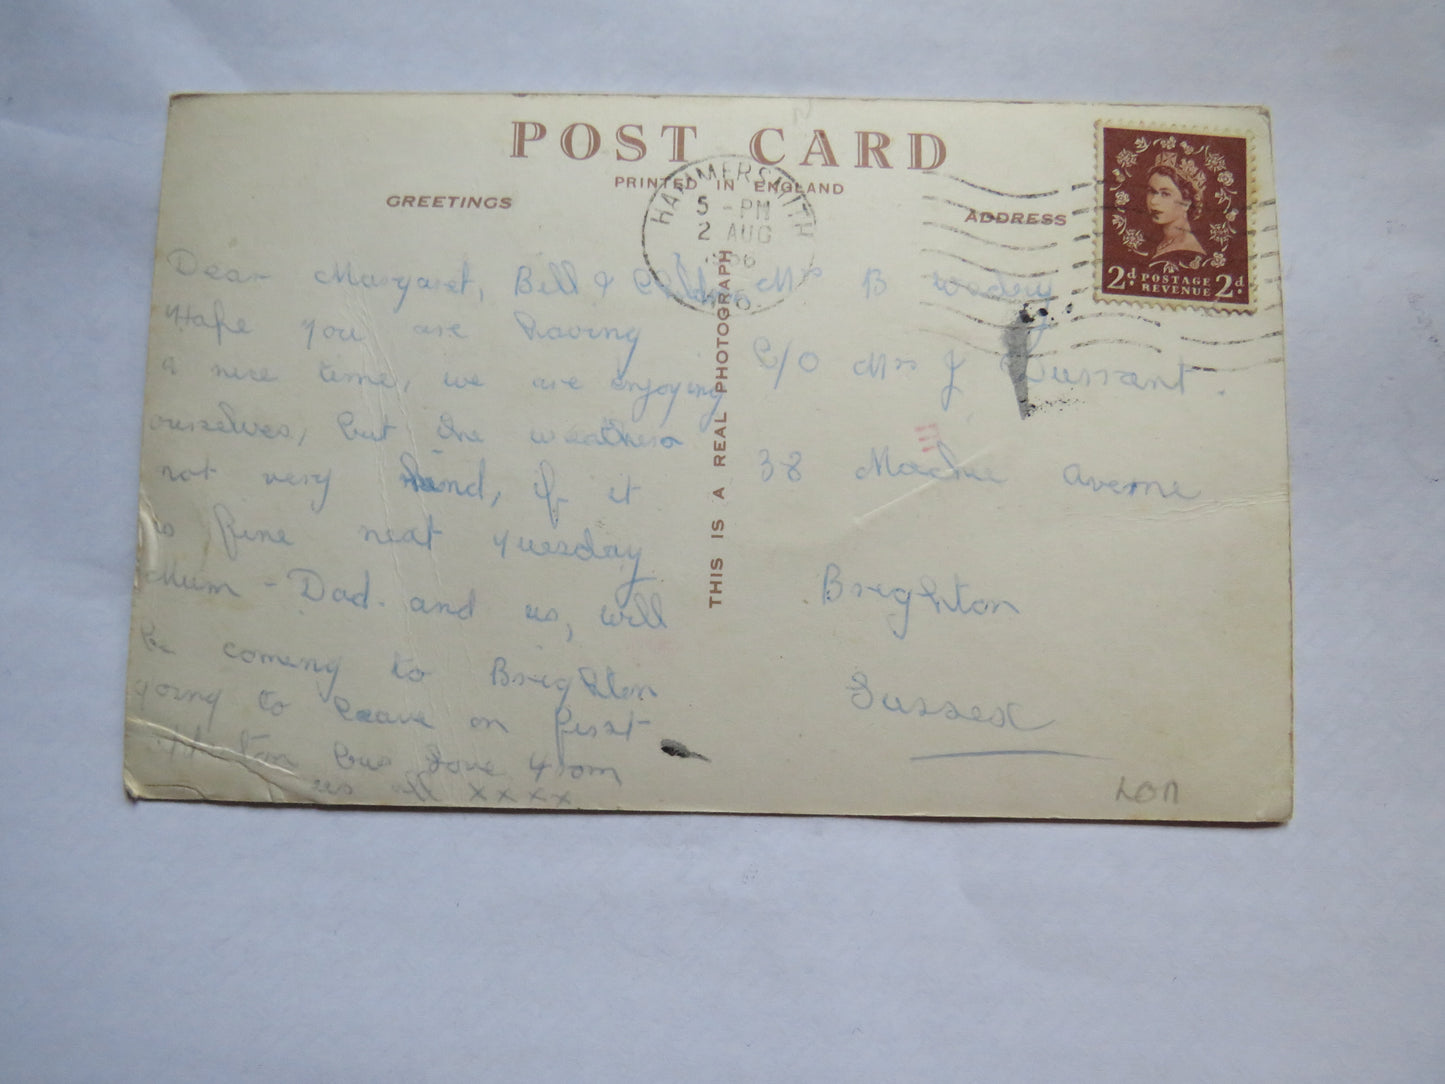 POST CARD
PRINTED IN ENGLAND
GREETINGS
ADDRESS
HAMMERSMITH
5 - PM
2 AUG
1956
2d POSTAGE REVENUE 2d
THIS IS A REAL PHOTOGRAPH
Dear Margaret, Bill &
Hope you are having
a nice time, we are enjoying
ourselves, but the weather is
not very kind, if it
is fine next Tuesday
Mum - Dad. and us, will
be coming to Brighton
going to leave on first
bus love from
us all xxxx
Mrs B
C/O Mrs J Durrant.
38 Avenue
Brighton
Sussex
LON